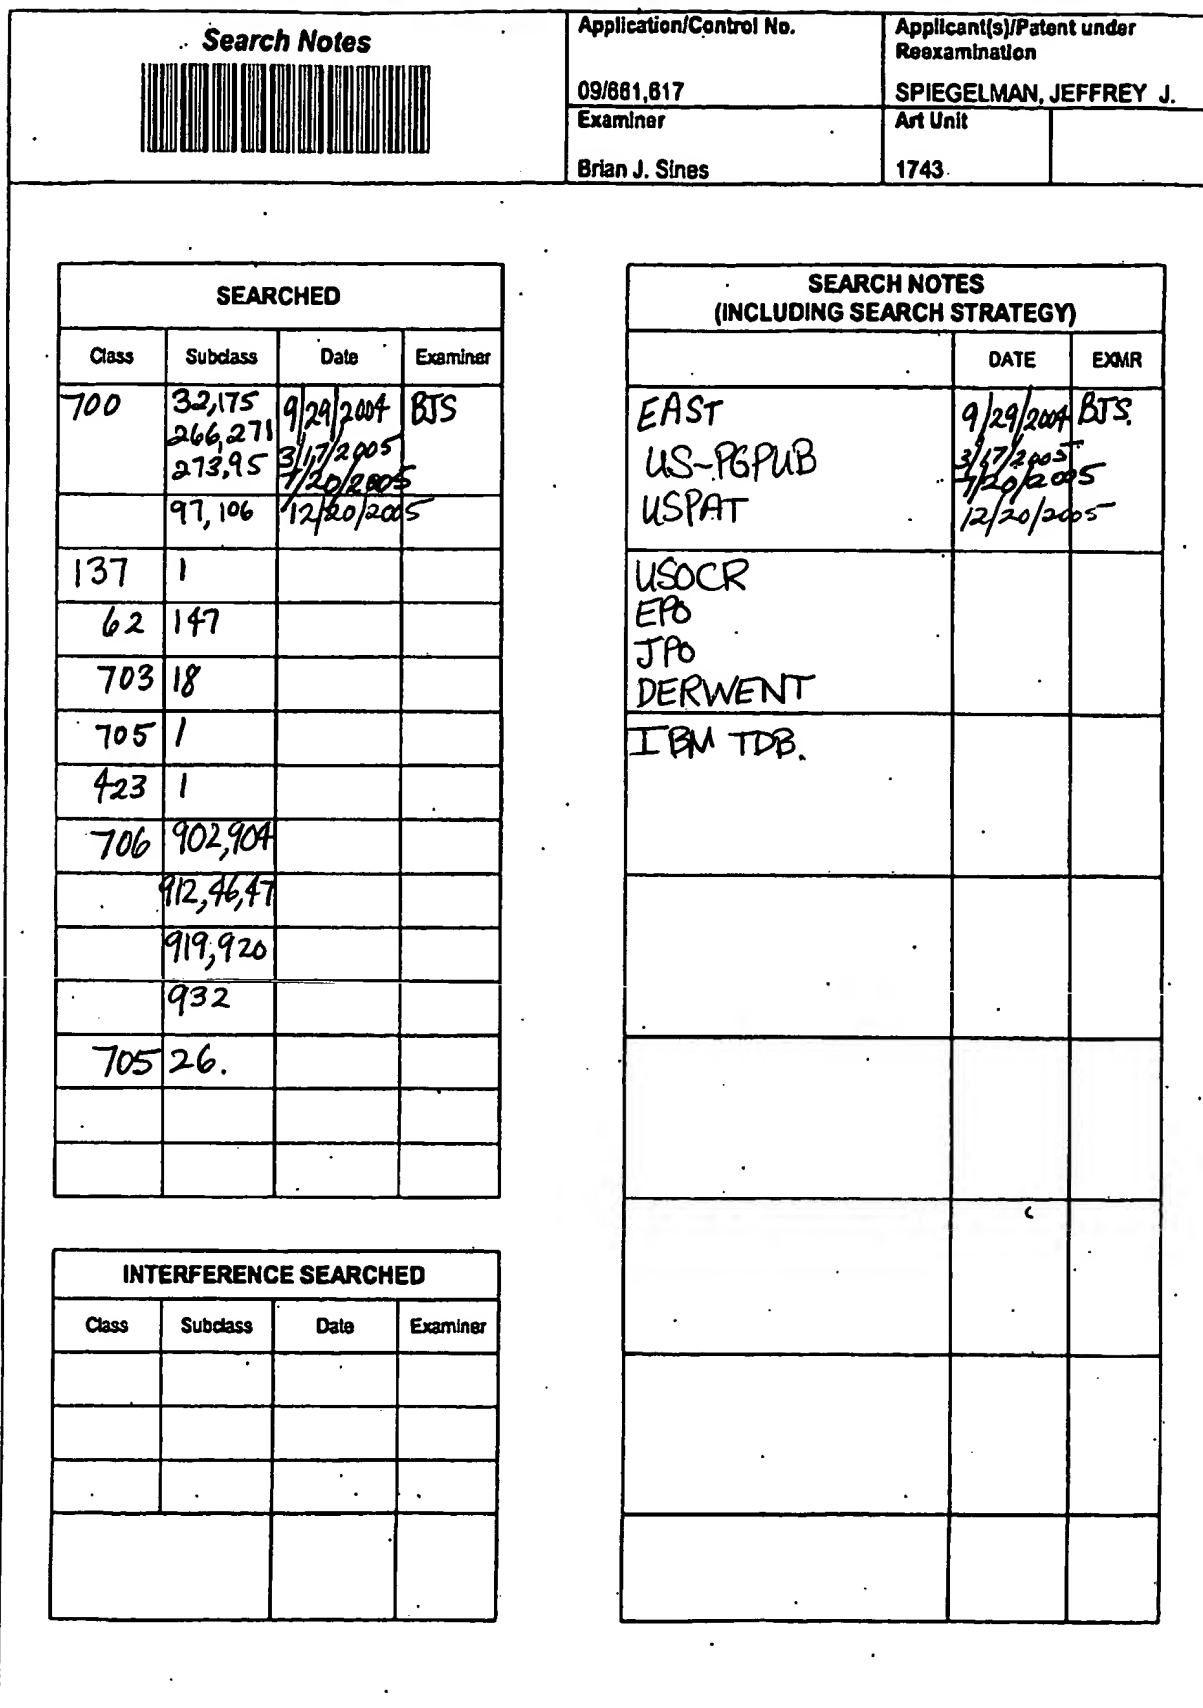 Search Notes
Application/Control No.
09/681,617
Applicant(s)/Patent under
Reexamination
SPIEGELMAN, JEFFREY J.
Examiner
Brian J. Sines
Art Unit
1743
SEARCHED
Class Subclass Date Examiner
700 32,175 9/29/2004 BJS
266,271 3/17/2005
273,95 7/20/2005
97,106 12/20/2005
137 1
62 147
703 18
705 1
423 1
706 902,904
912,46,47
919,920
932
705 26.
INTERFERENCE SEARCHED
Class Subclass Date Examiner
SEARCH NOTES
(INCLUDING SEARCH STRATEGY)
DATE EXMR
EAST 9/29/2004 BJS.
US-PGPUB 3/17/2005
7/20/2005
USPAT 12/20/2005
USOCR
EPO
JPO
DERWENT
IBM TDB.